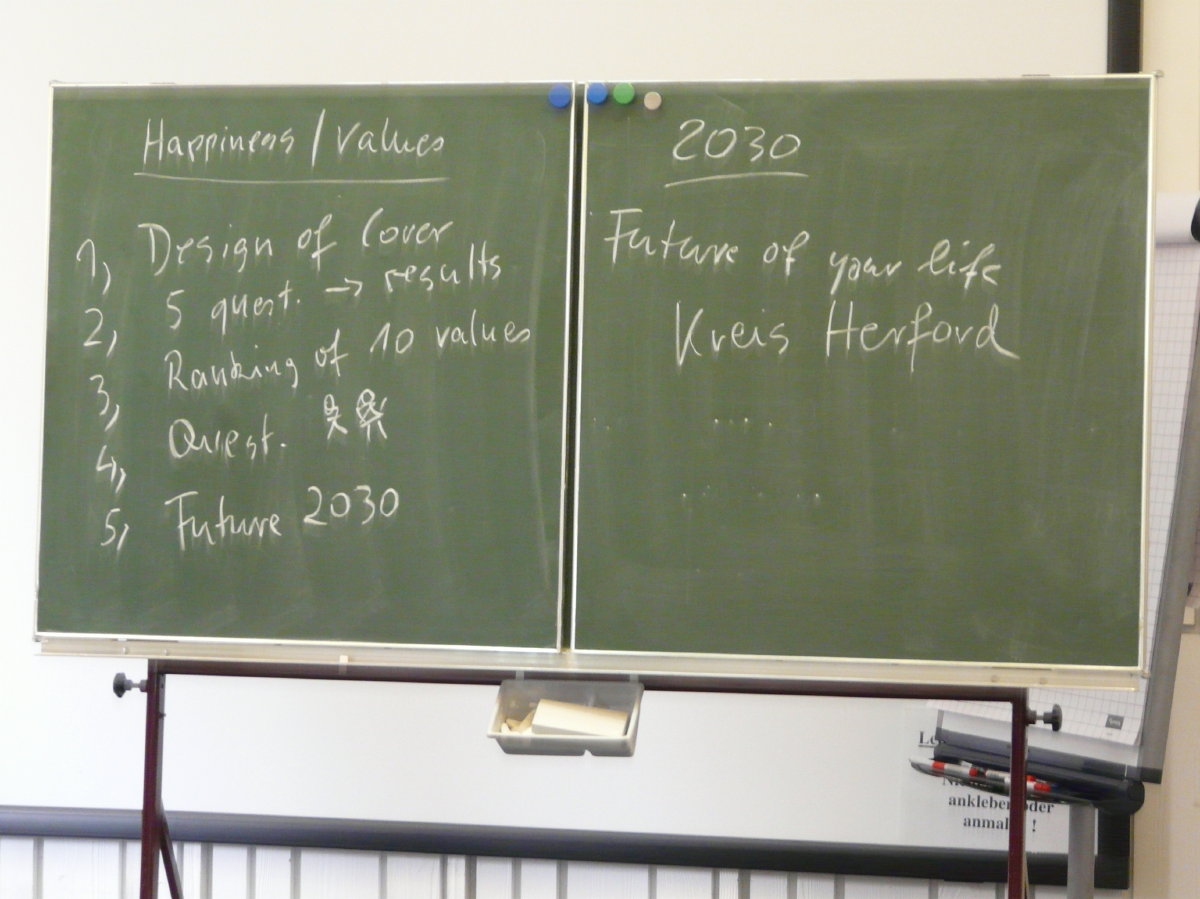 Happiness / Values
1, Design of Cover
2, 5 quest. → results
3, Ranking of 10 values
4, Quest.
5, Future 2030
2030
Future of your life
Kreis Herford
ankleben oder
anmalen !